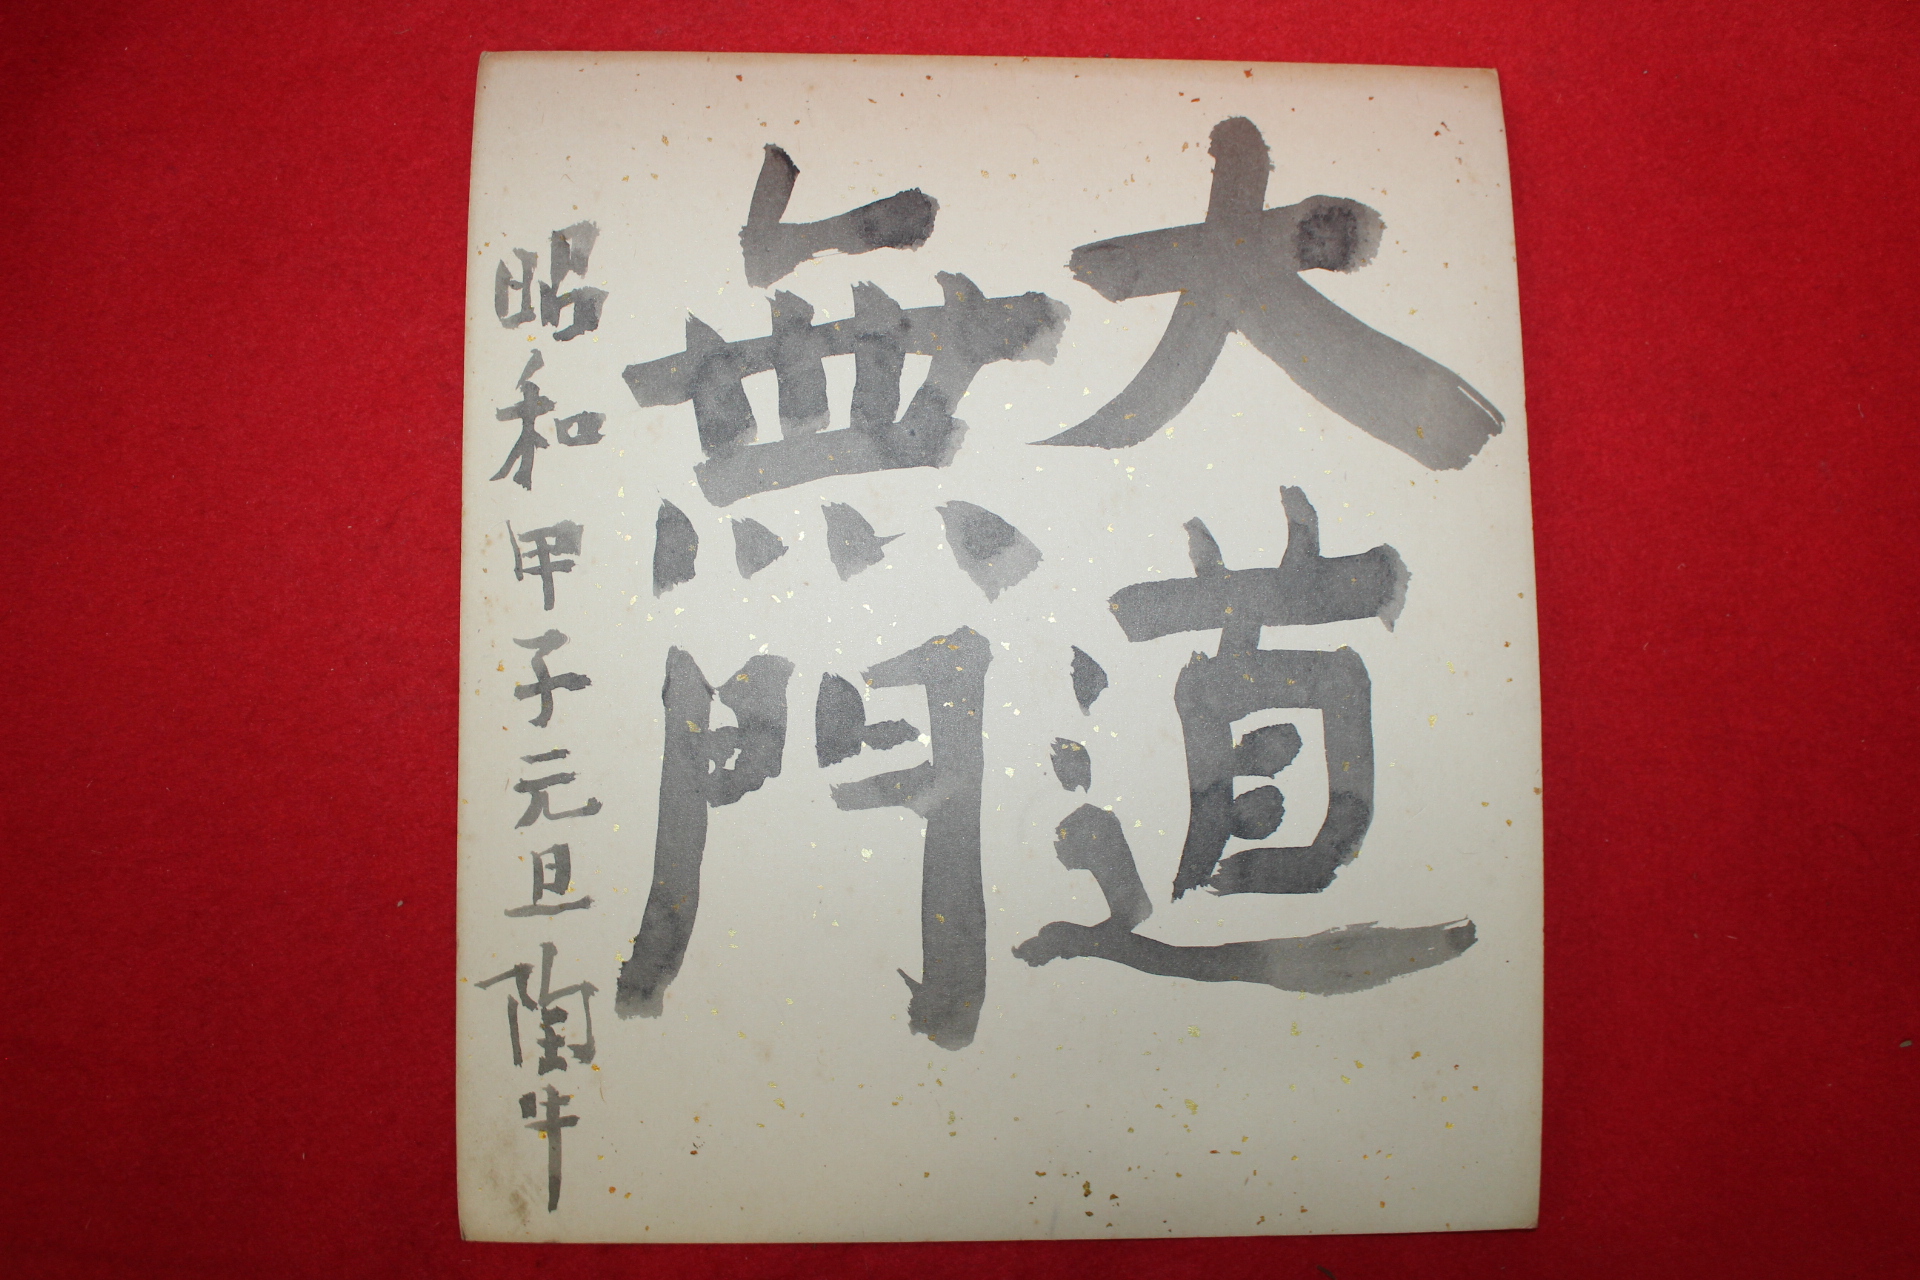 大道
無門
昭和甲子元旦陶牛